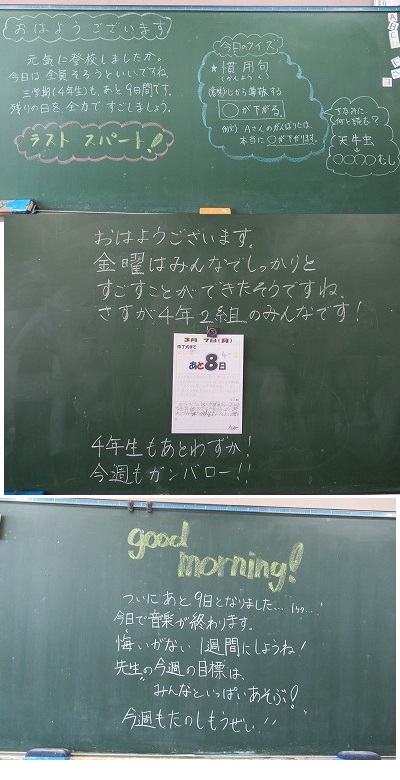 おはようございます
元気に登校しましたか。
今日は全員そろうといいですね。
三学期(4年生)も、あと9日間です。
残りの日を、全力ですごしましょう。
ラストスパート!
今日のクイズ
★慣用句
(かんようく)
心から尊敬する
〇が下がる。
(例文) Aさんのがんばりには
本当に〇が下がります。
ちなみに
何と読む?
天牛虫
↓
〇〇〇〇むし
A
B
C
おはようございます。
金曜はみんなでしっかりと
すごすことができたそうですね。
さすが4年2組のみんなです!
3月 7日(月)
修了式まで
あと8日
4年生もあとわずか!
今週もガンバロー!!
good
morning!
ついにあと9日となりました…
今日で音楽が終わります。
悔いがない1週間にしようね!
先生の今週の目標は、
みんなといっぱいあそぶ!
今週もたのしもうぜい!!